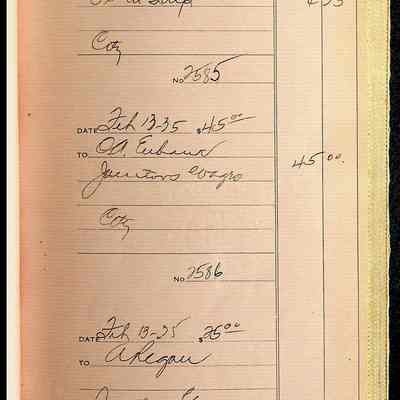 City
No 2585
DATE Feb 13-35 $45.00
TO O.A. Eubank
Janitors wages 45 00
City
No 2586
DATE Feb 13-35 $25.00
TO A Regan